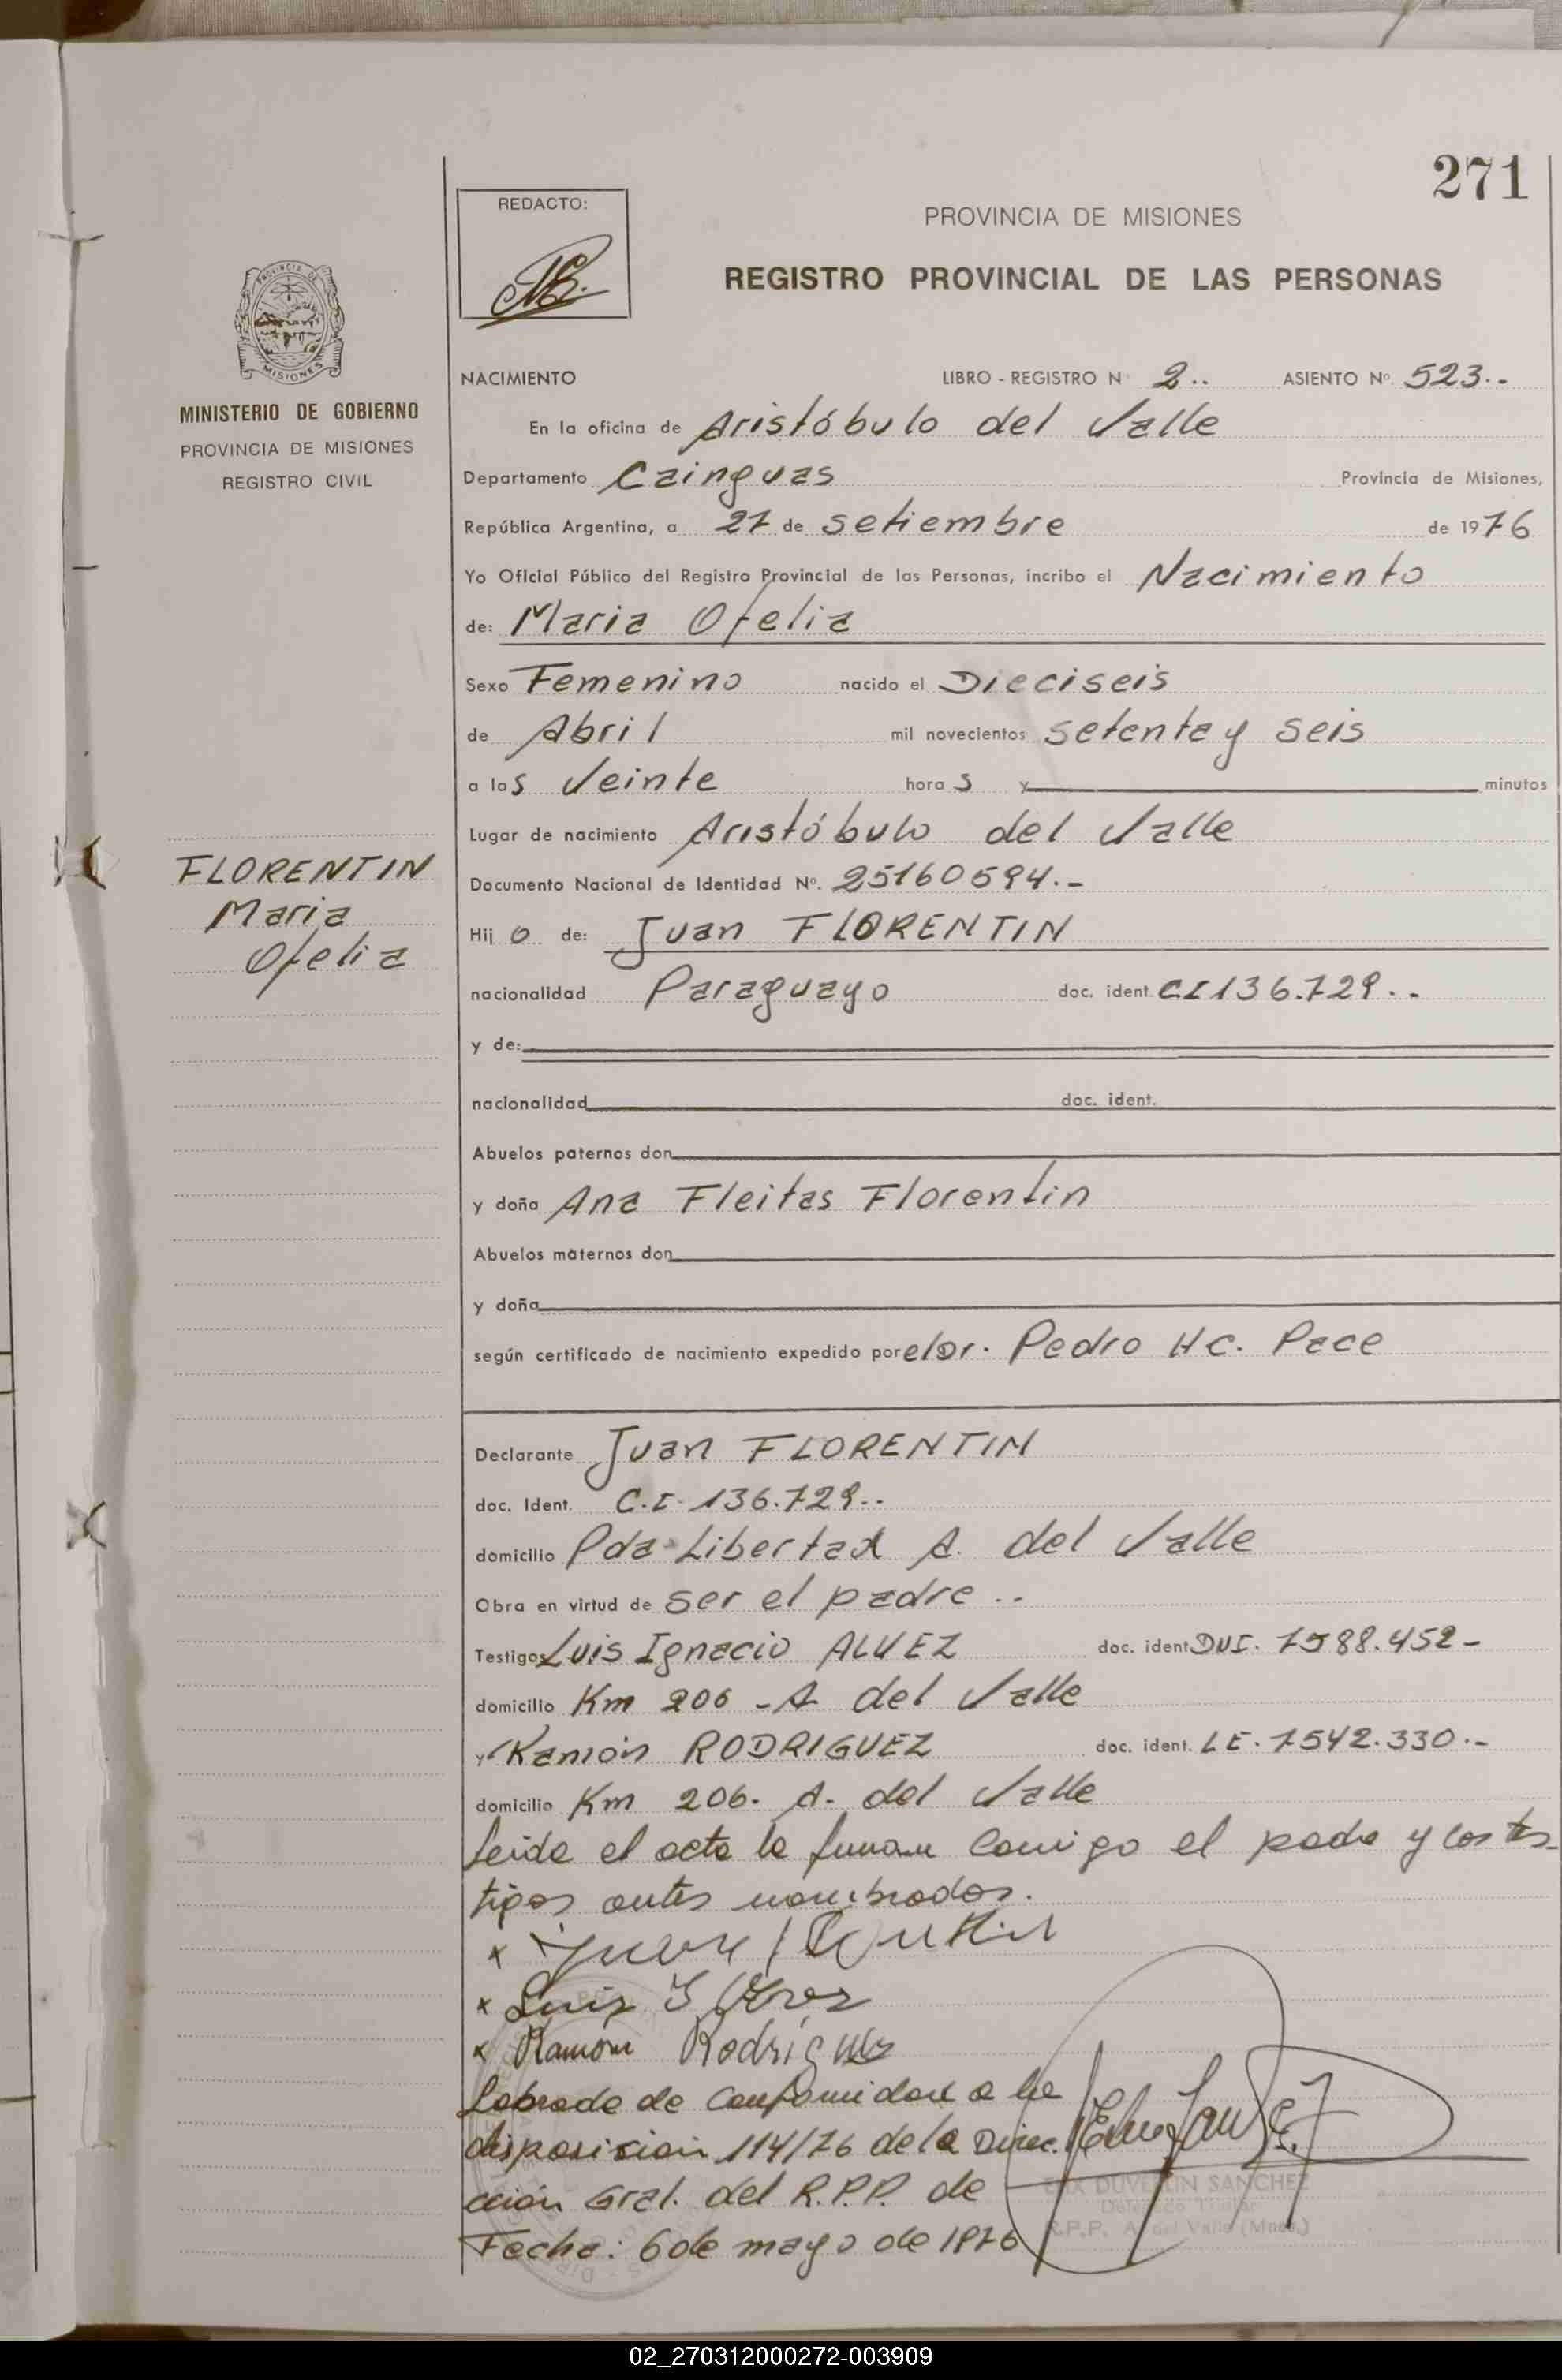 271
REDACTO:
PROVINCIA DE MISIONES
REGISTRO PROVINCIAL DE LAS PERSONAS
PROVINCIA DE
MISIONES
MINISTERIO DE GOBIERNO
PROVINCIA DE MISIONES
REGISTRO CIVIL
FLORENTIN
Maria
Ofelia
NACIMIENTO LIBRO - REGISTRO N° 2.. ASIENTO Nº. 523.-
En la oficina de Aristóbulo del Valle
Departamento Cainguas Provincia de Misiones,
República Argentina, a 27 de setiembre de 1976
Yo Oficial Público del Registro Provincial de las Personas, incribo el Nacimiento
de: Maria Ofelia
Sexo Femenino nacido el Dieciseis
de Abril mil novecientos setenta y seis
a las Veinte horas y minutos
Lugar de nacimiento Aristóbulo del Valle
Documento Nacional de Identidad Nº. 25160594.-
Hijo de: Juan FLORENTIN
nacionalidad Paraguayo doc. ident. CI 136.729..
y de:
nacionalidad doc. ident.
Abuelos paternos don
y doña Ana Fleitas Florentin
Abuelos maternos don
y doña
según certificado de nacimiento expedido por el Dr. Pedro HC. Pace
Declarante Juan FLORENTIN
doc. Ident. C.I. 136.729..
domicilio Pda Libertad A. del Valle
Obra en virtud de ser el padre ..
Testigos Luis Ignacio ALVEZ doc. ident DNI. 7588.452-
domicilio Km 206 - A del Valle
y Ramón RODRIGUEZ doc. ident. LE. 7542.330.-
domicilio Km 206. A. del Valle
Leida el acta la firman conmigo el padre y los tes-
tigos antes nombrados.
x Juan
x Luis I
x Ramon Rodriguez
Labrada de conformidad a la
disposicion 114/76 de la Direc.
cción Gral. del R.P.P. de
Fecha: 6 de mayo de 1976
DUVERLIN SANCHEZ
R.P.P. A. del Valle (Mnes.)
02_270312000272-003909